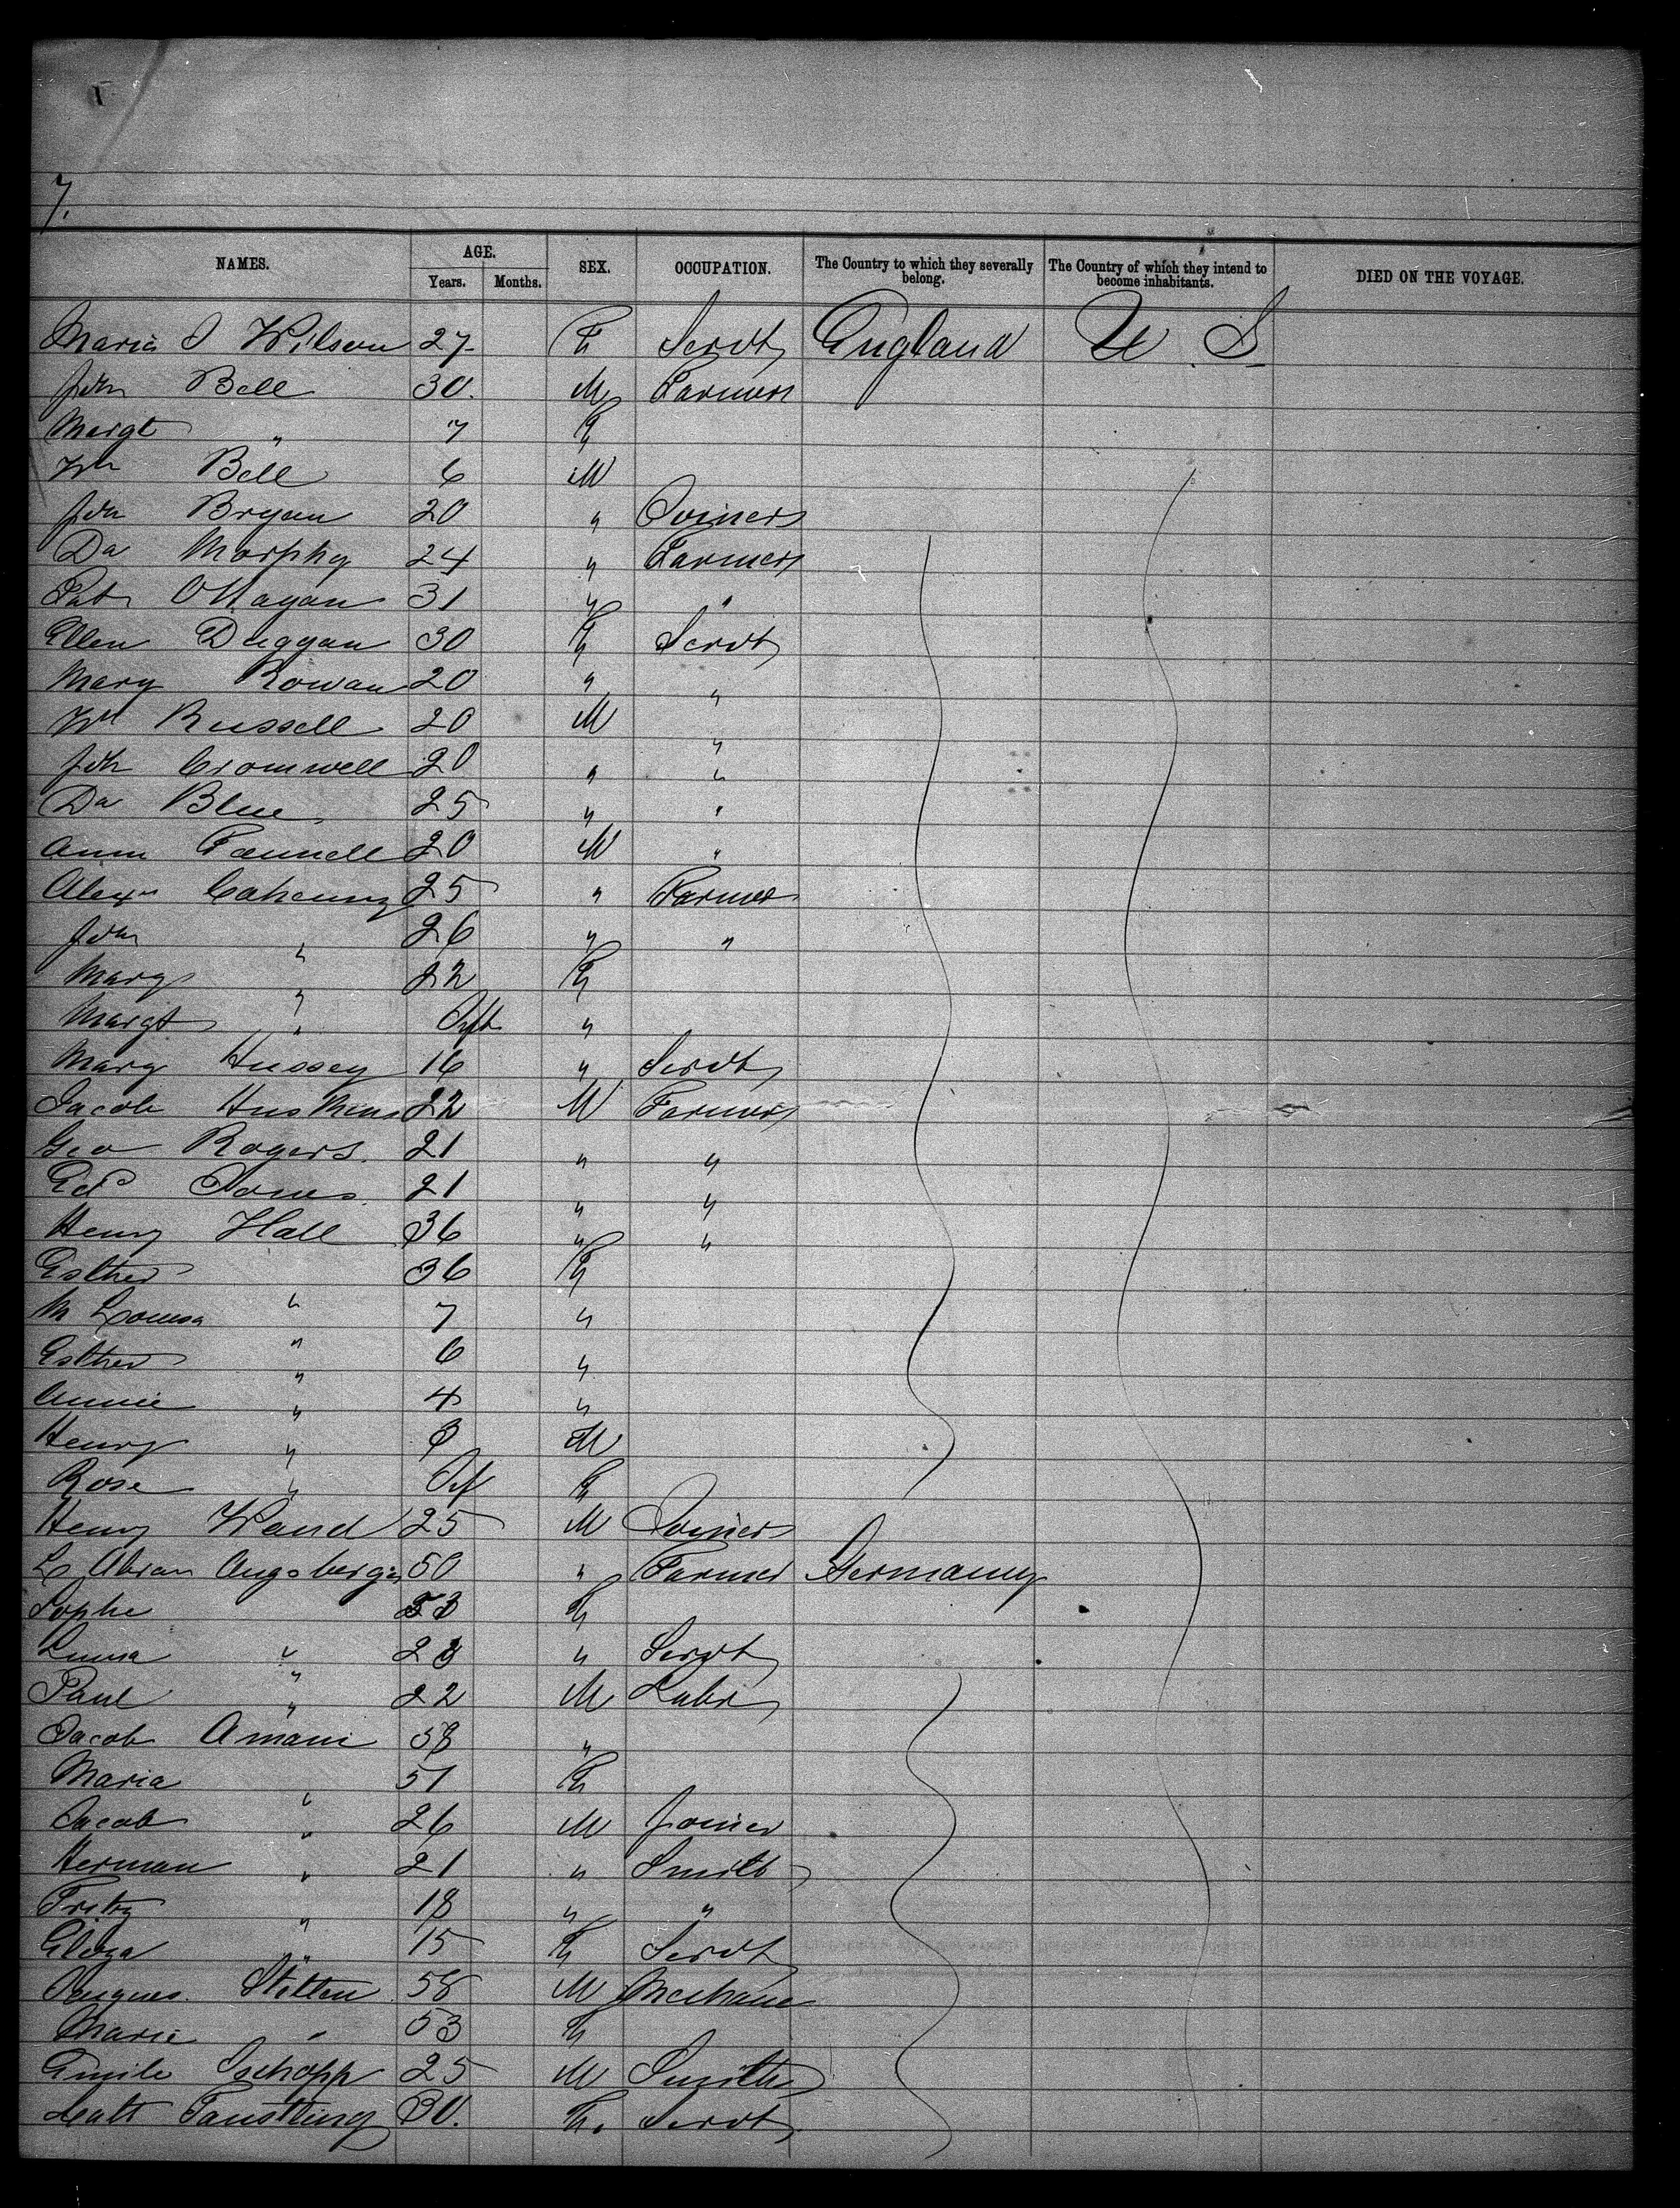 7.
NAMES. AGE. Years. Months. SEX. OCCUPATION. The Country to which they severally belong. The Country of which they intend to become inhabitants. DIED ON THE VOYAGE.
Maria J Wilson 27 F Servt England U S
John Bell 30. M Farmer
Margt " 7 F
Wm Bell 6 M
Jno Bryan 20 " Joiner
Da Morphy 24 " Farmer
Patr OHagan 31 " "
Ellen Duggan 30 F Servt
Mary Rowan 20 " "
Wm Russell 20 M "
Jno Cromwell 20 " "
Da Blue 25 " "
Ann 20 M "
Alexr 25 " Farmer
Jno " 26 " "
Mary " 22 F
Margt " Inft "
Mary Hussey 16 " Servt
Jacob 22 M Farmer
Geo Rogers. 21 " "
Edd Jones 21 " "
Henry Hall 36 " "
Esther " 36 F
M Louisa " 7 "
Esther " 6 "
Annie " 4 "
Henry " 3 M
Rose " Inf F
Henry Wand 25 M Joiner
Abram Augsberger 50 " Farmer Germany
Sophe " F
" " Servt
Paul " 22 M Labr
Jacob Amani 58 "
Maria " 51 F
Jacob " 26 M Joiner
Herman " 21 " Smith
Fritz " 18 " "
Eliza " 15 F Servt
58 M Mechanic
Marie " 53 F
Emile Tschopp 25 M Smith
30. F. Servt